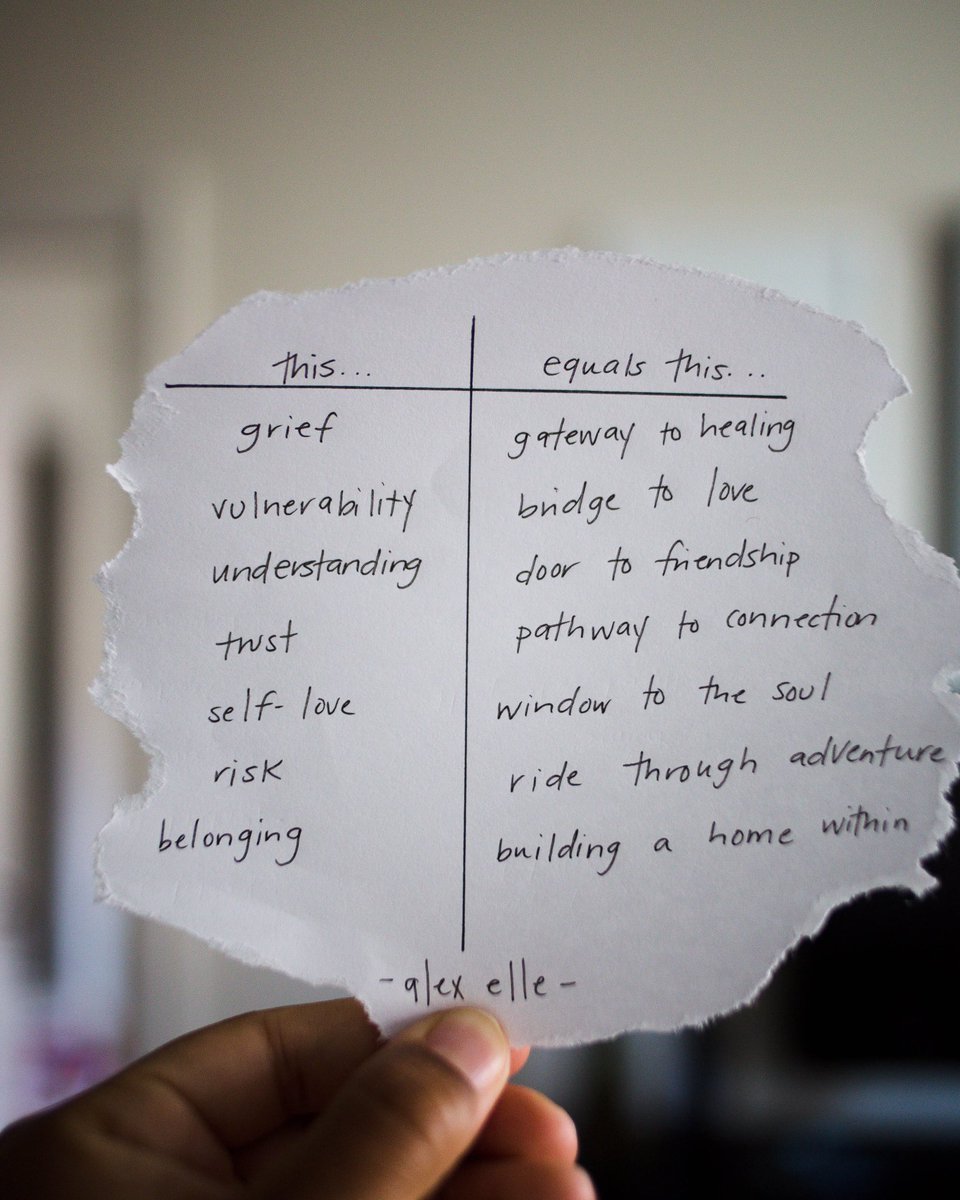 this... equals this...
grief gateway to healing
vulnerability bridge to love
understanding door to friendship
trust pathway to connection
self-love window to the soul
risk ride through adventure
belonging building a home within
-alex elle-